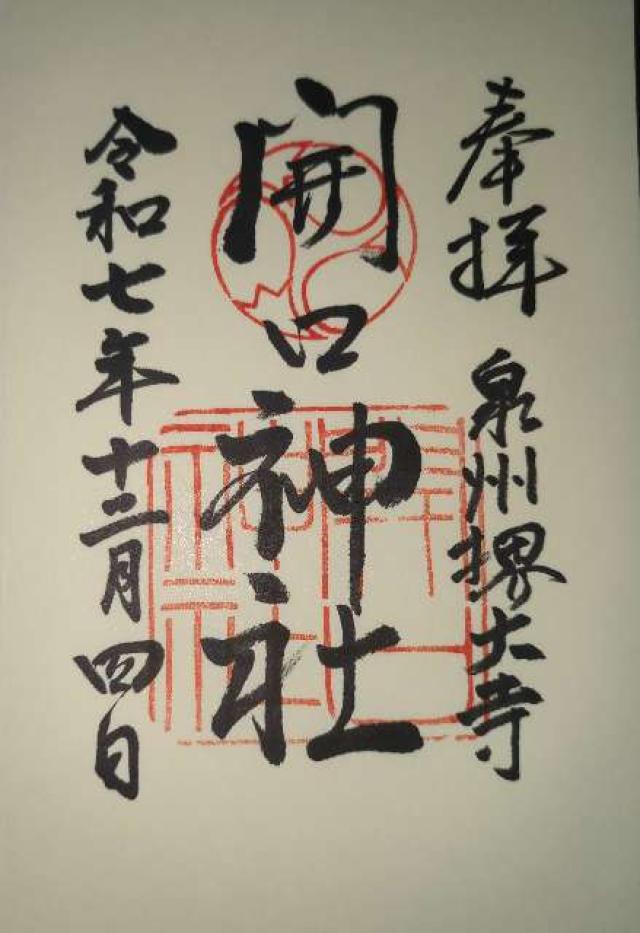 奉拝 泉州堺大寺
開口神社
令和七年十二月四日
開口神社